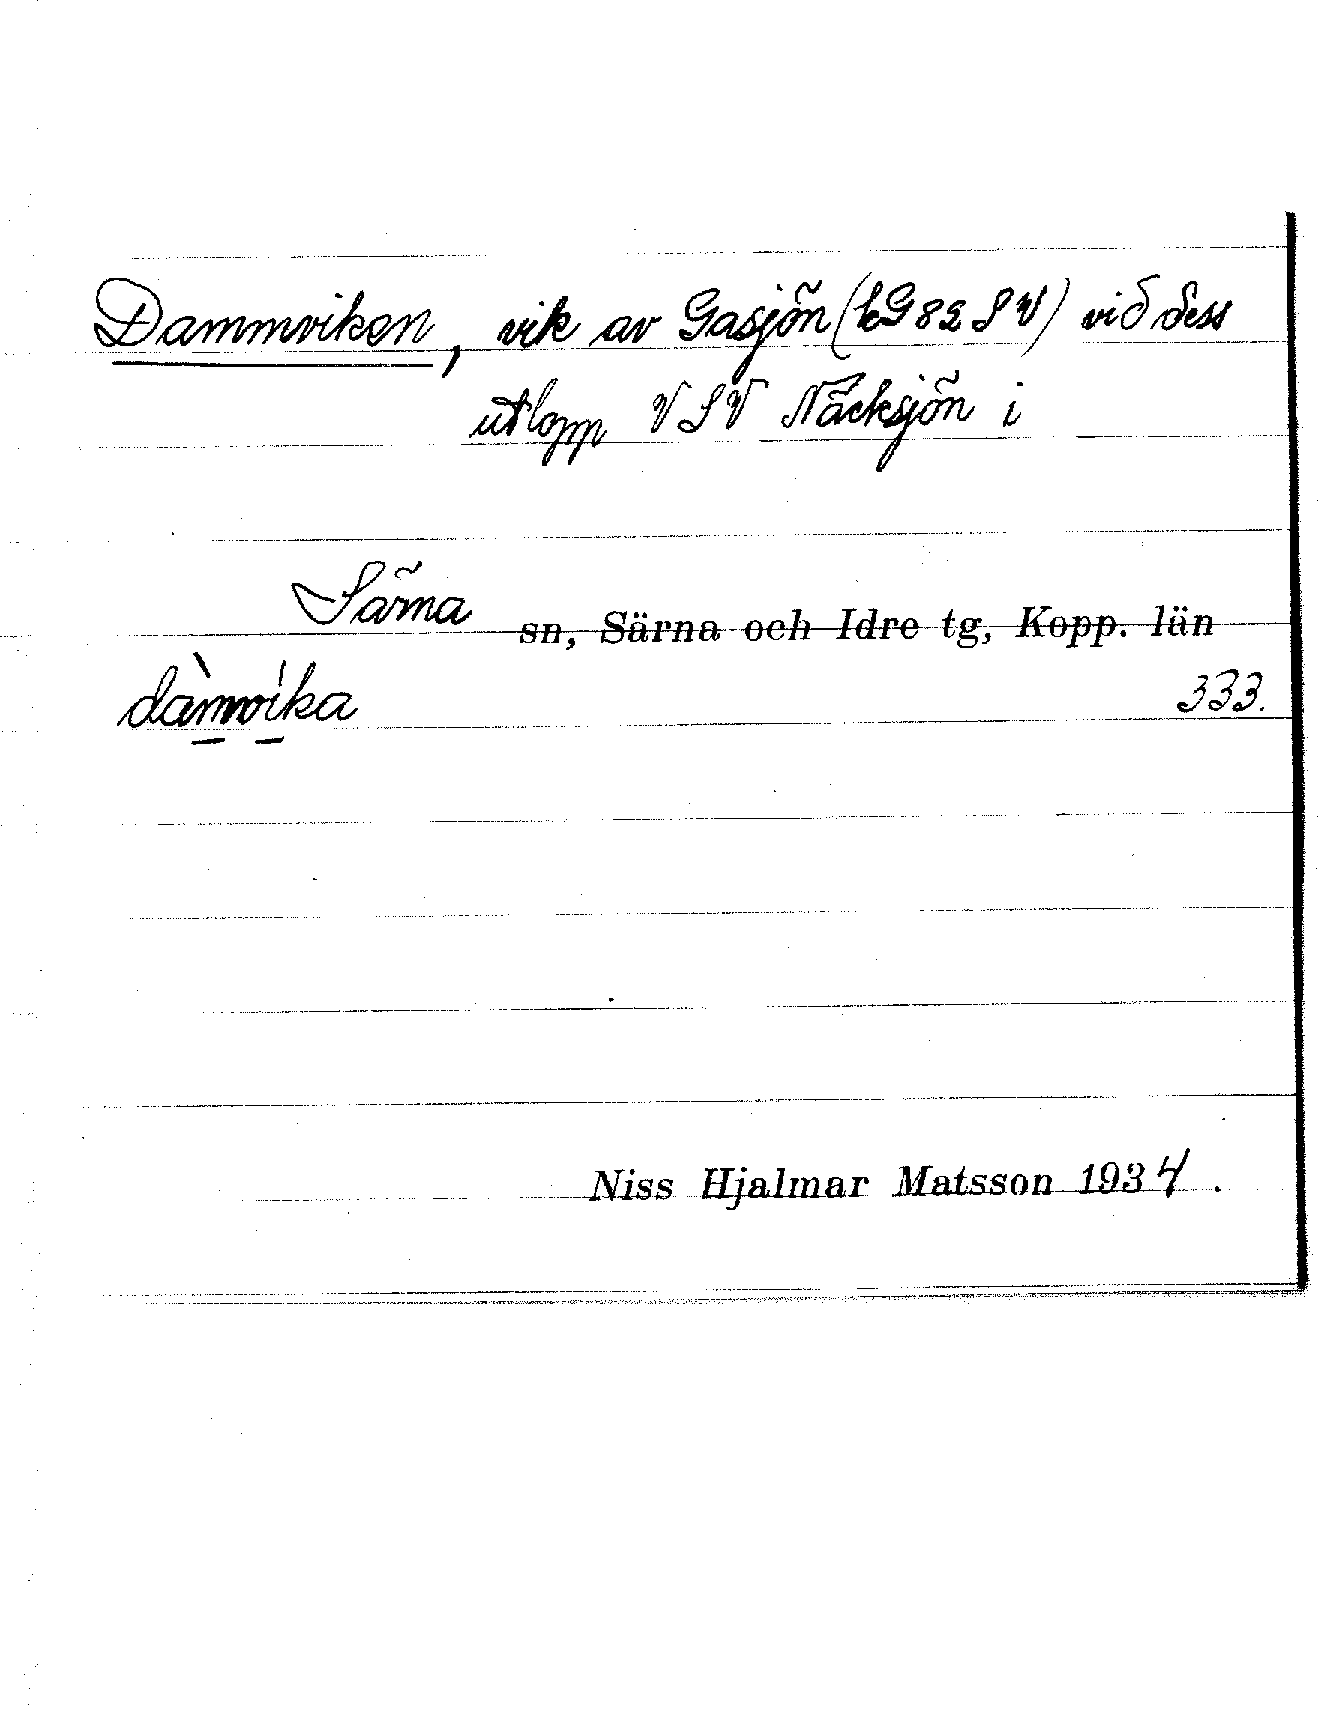 Dammviken, vik av Gasjön (kG 82 SV) vid dess
utlopp VSV Näcksjön i
Särna sn, Särna och Idre tg, Kopp. län
dàmvíka 333.
Niss Hjalmar Matsson 1934.